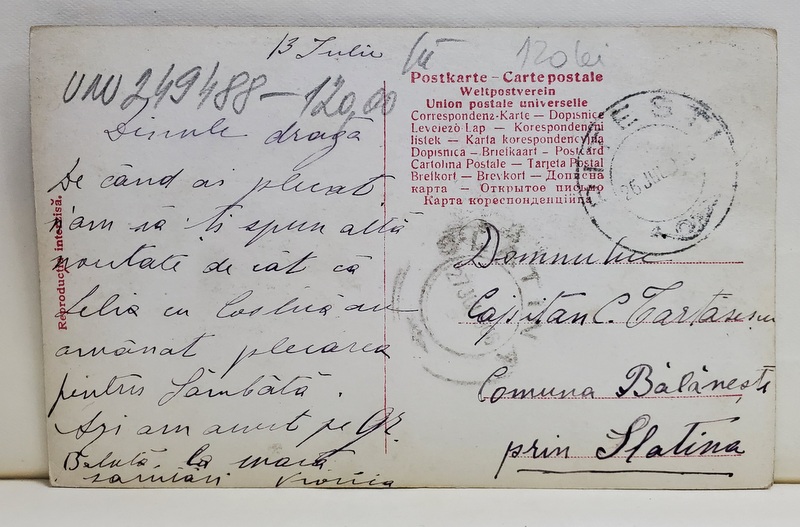 13 Iulie
120 lei
UNU 249488 - 120,00
dragă
De când ai plecat
n'am să ți spun altă
noutate de cât că
Lelia cu Costică au
amânat plecarea
pentru Sâmbătă.
Azi am avut pe
la masă
sărutări Viorica
Reproducția interzisă.
Postkarte – Carte postale
Weltpostverein
Union postale universelle
Correspondenz-Karte – Dopisnice
Levelező Lap – Korespondencni
listek – Karta korespondencyjna
Dopisnica – Briefkaart – Postcard
Cartolina Postale – Tarjeta Postal
Brefkort – Brevkort – Дописна
карта – Открытое письмо
Карта кореспонденційна
26 JUL
SLATINA
27 JUL
Domnului
Căpitan C. Tartasescu
Comuna Bălănești
prin Slatina